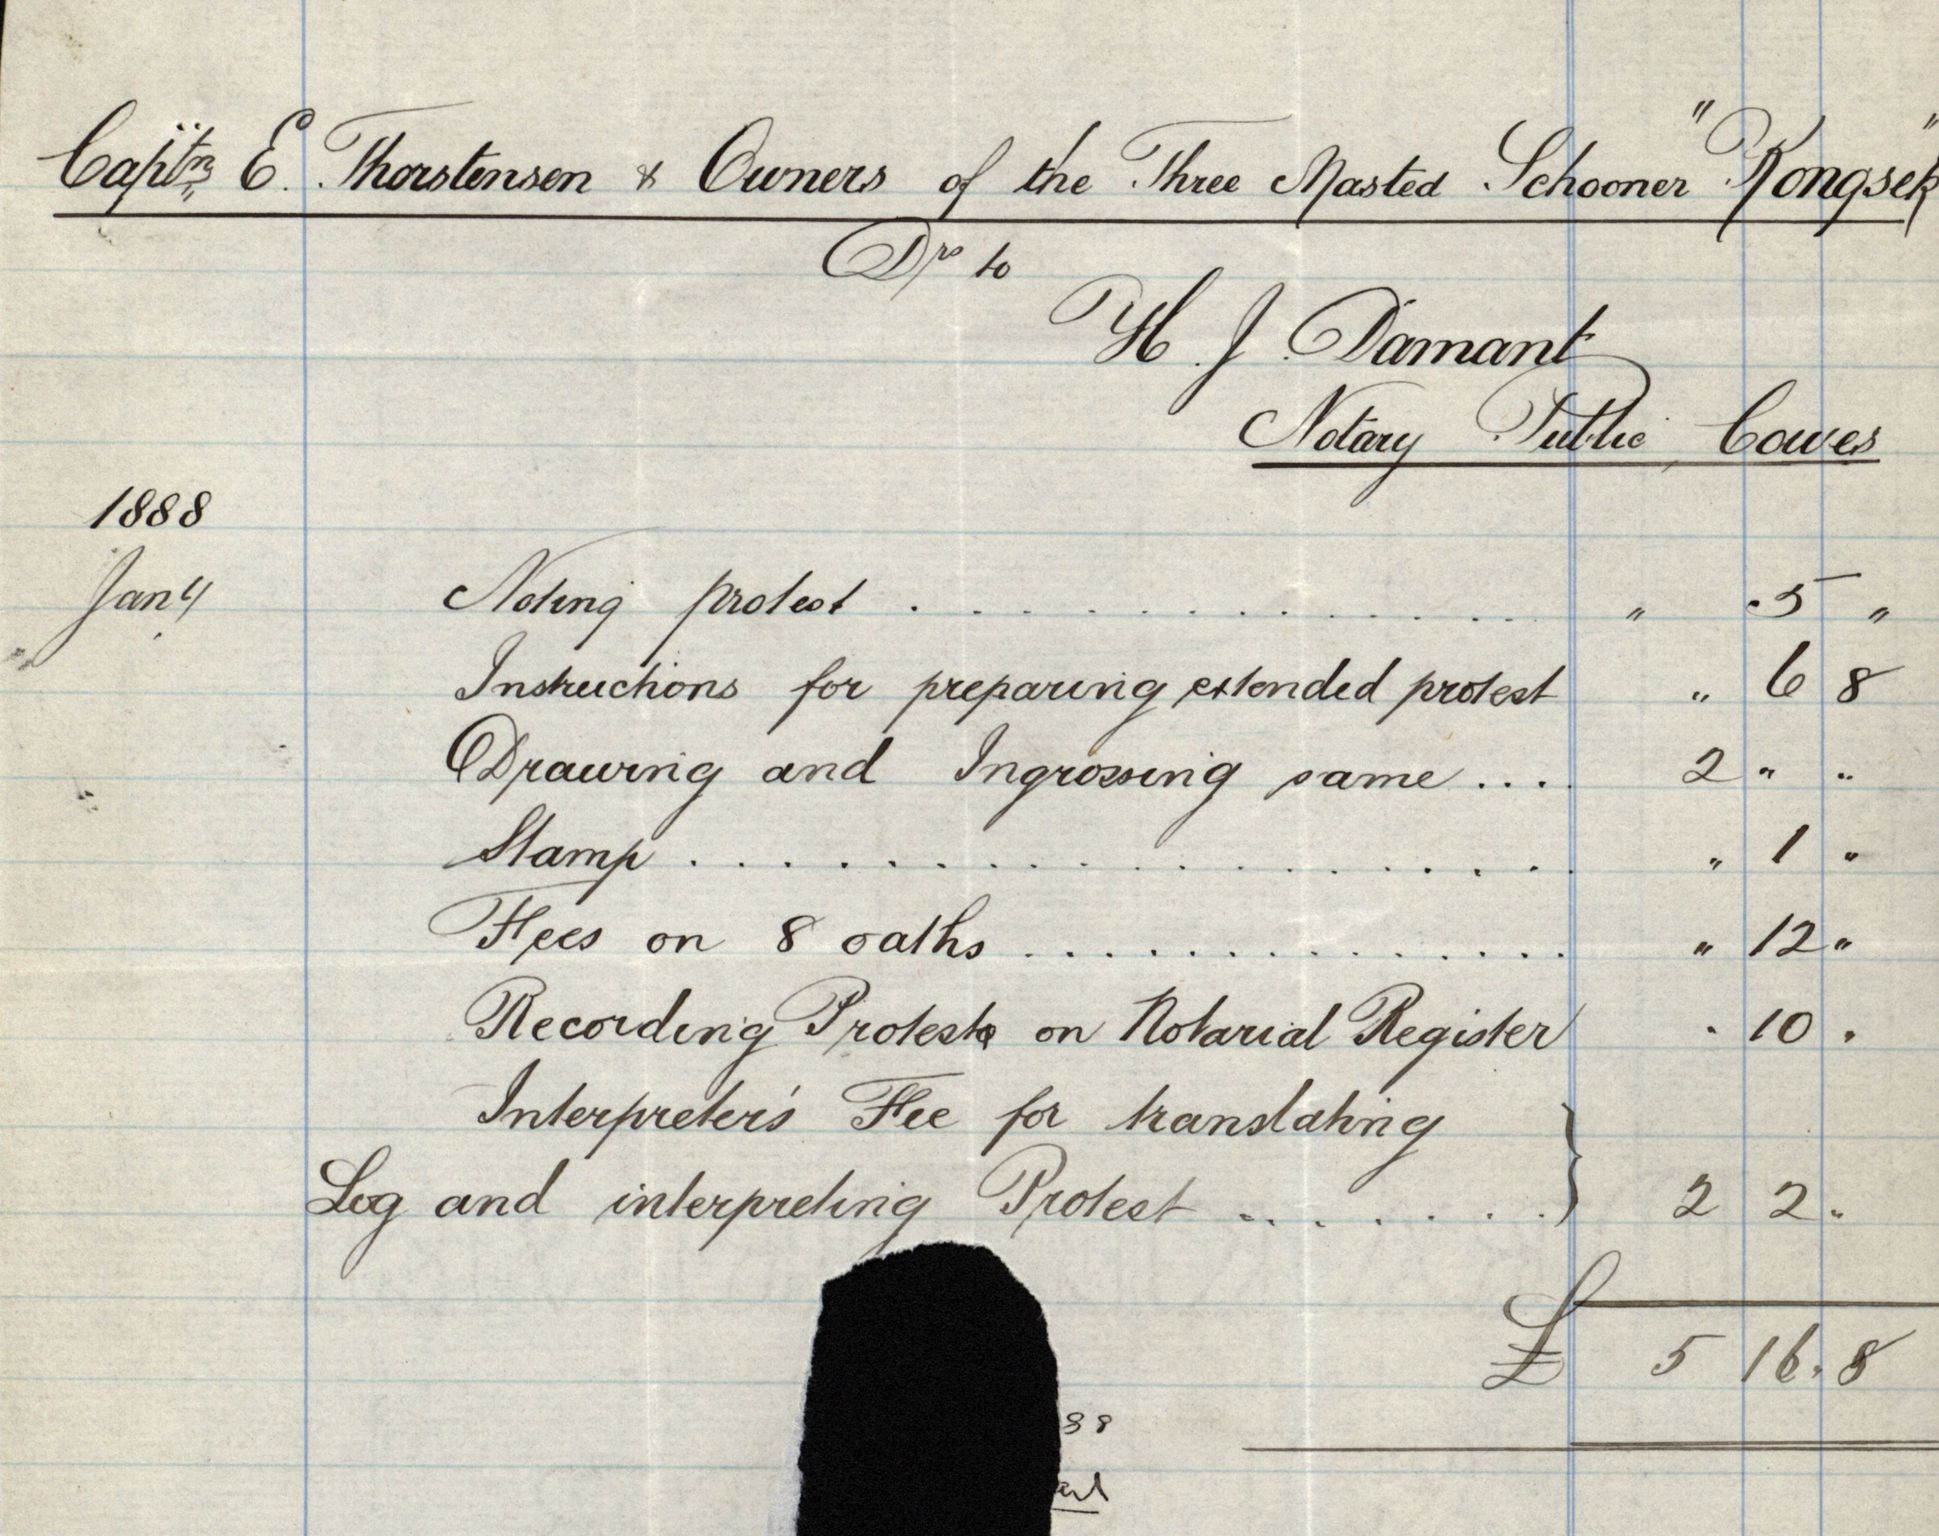 Captn E. Thorstensen & Owners of the Three Masted Schooner "Kongsek"
Drs to
H. J. Damant
Notary Public, Cowes
1888
Jan 4 Noting protest . . . . . . . . . . . . . . " 5 "
Instructions for preparing extended protest " 6 8
Drawing and Ingrossing same .... 2 " "
Stamp . . . . . . . . . . . . . . . . . . " 1 "
Fees on 8 oaths . . . . . . . . . . . . . . . " 12 "
Recording Protest on Notarial Register " 10 "
Interpreter's Fee for translating
Log and interpreting Protest . . . . . . . . } 2 2 "
£ 5 16. 8
88